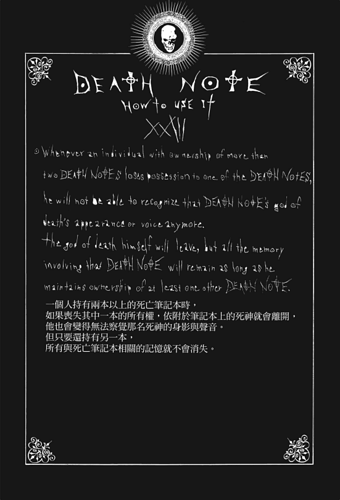 DEATH NOTE
HOW TO USE IT
XXII
Whenever an individual with ownership of more than
two DEATH NOTES loses possession to one of the DEATH NOTES,
he will not be able to recognize that DEATH NOTE's god of
death's appearance or voice anymore.
The god of death himself will leave, but all the memory
involving that DEATH NOTE will remain as long as he
maintains ownership of at least one other DEATH NOTE.
一個人持有兩本以上的死亡筆記本時，
如果喪失其中一本的所有權，依附於筆記本上的死神就會離開，
他也會變得無法察覺那名死神的身影與聲音。
但只要還持有另一本，
所有與死亡筆記本相關的記憶就不會消失。